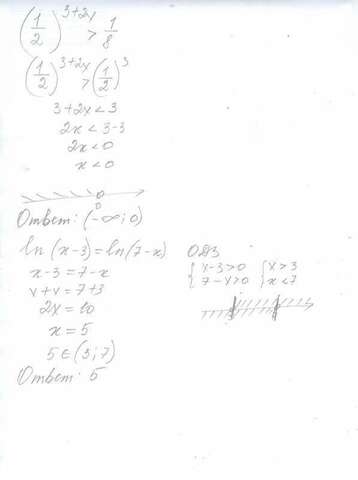 (1/2)^{3+2x} > 1/8
(1/2)^{3+2x} > (1/2)^3
3+2x<3
2x<3-3
2x<0
x<0
0
Ответ: (-∞; 0)
ln(x-3)=ln(7-x)
x-3=7-x
x+x=7+3
2x=10
x=5
5∈(3;7)
Ответ: 5
ОДЗ
{x-3>0 {x>3
{7-x>0 {x<7